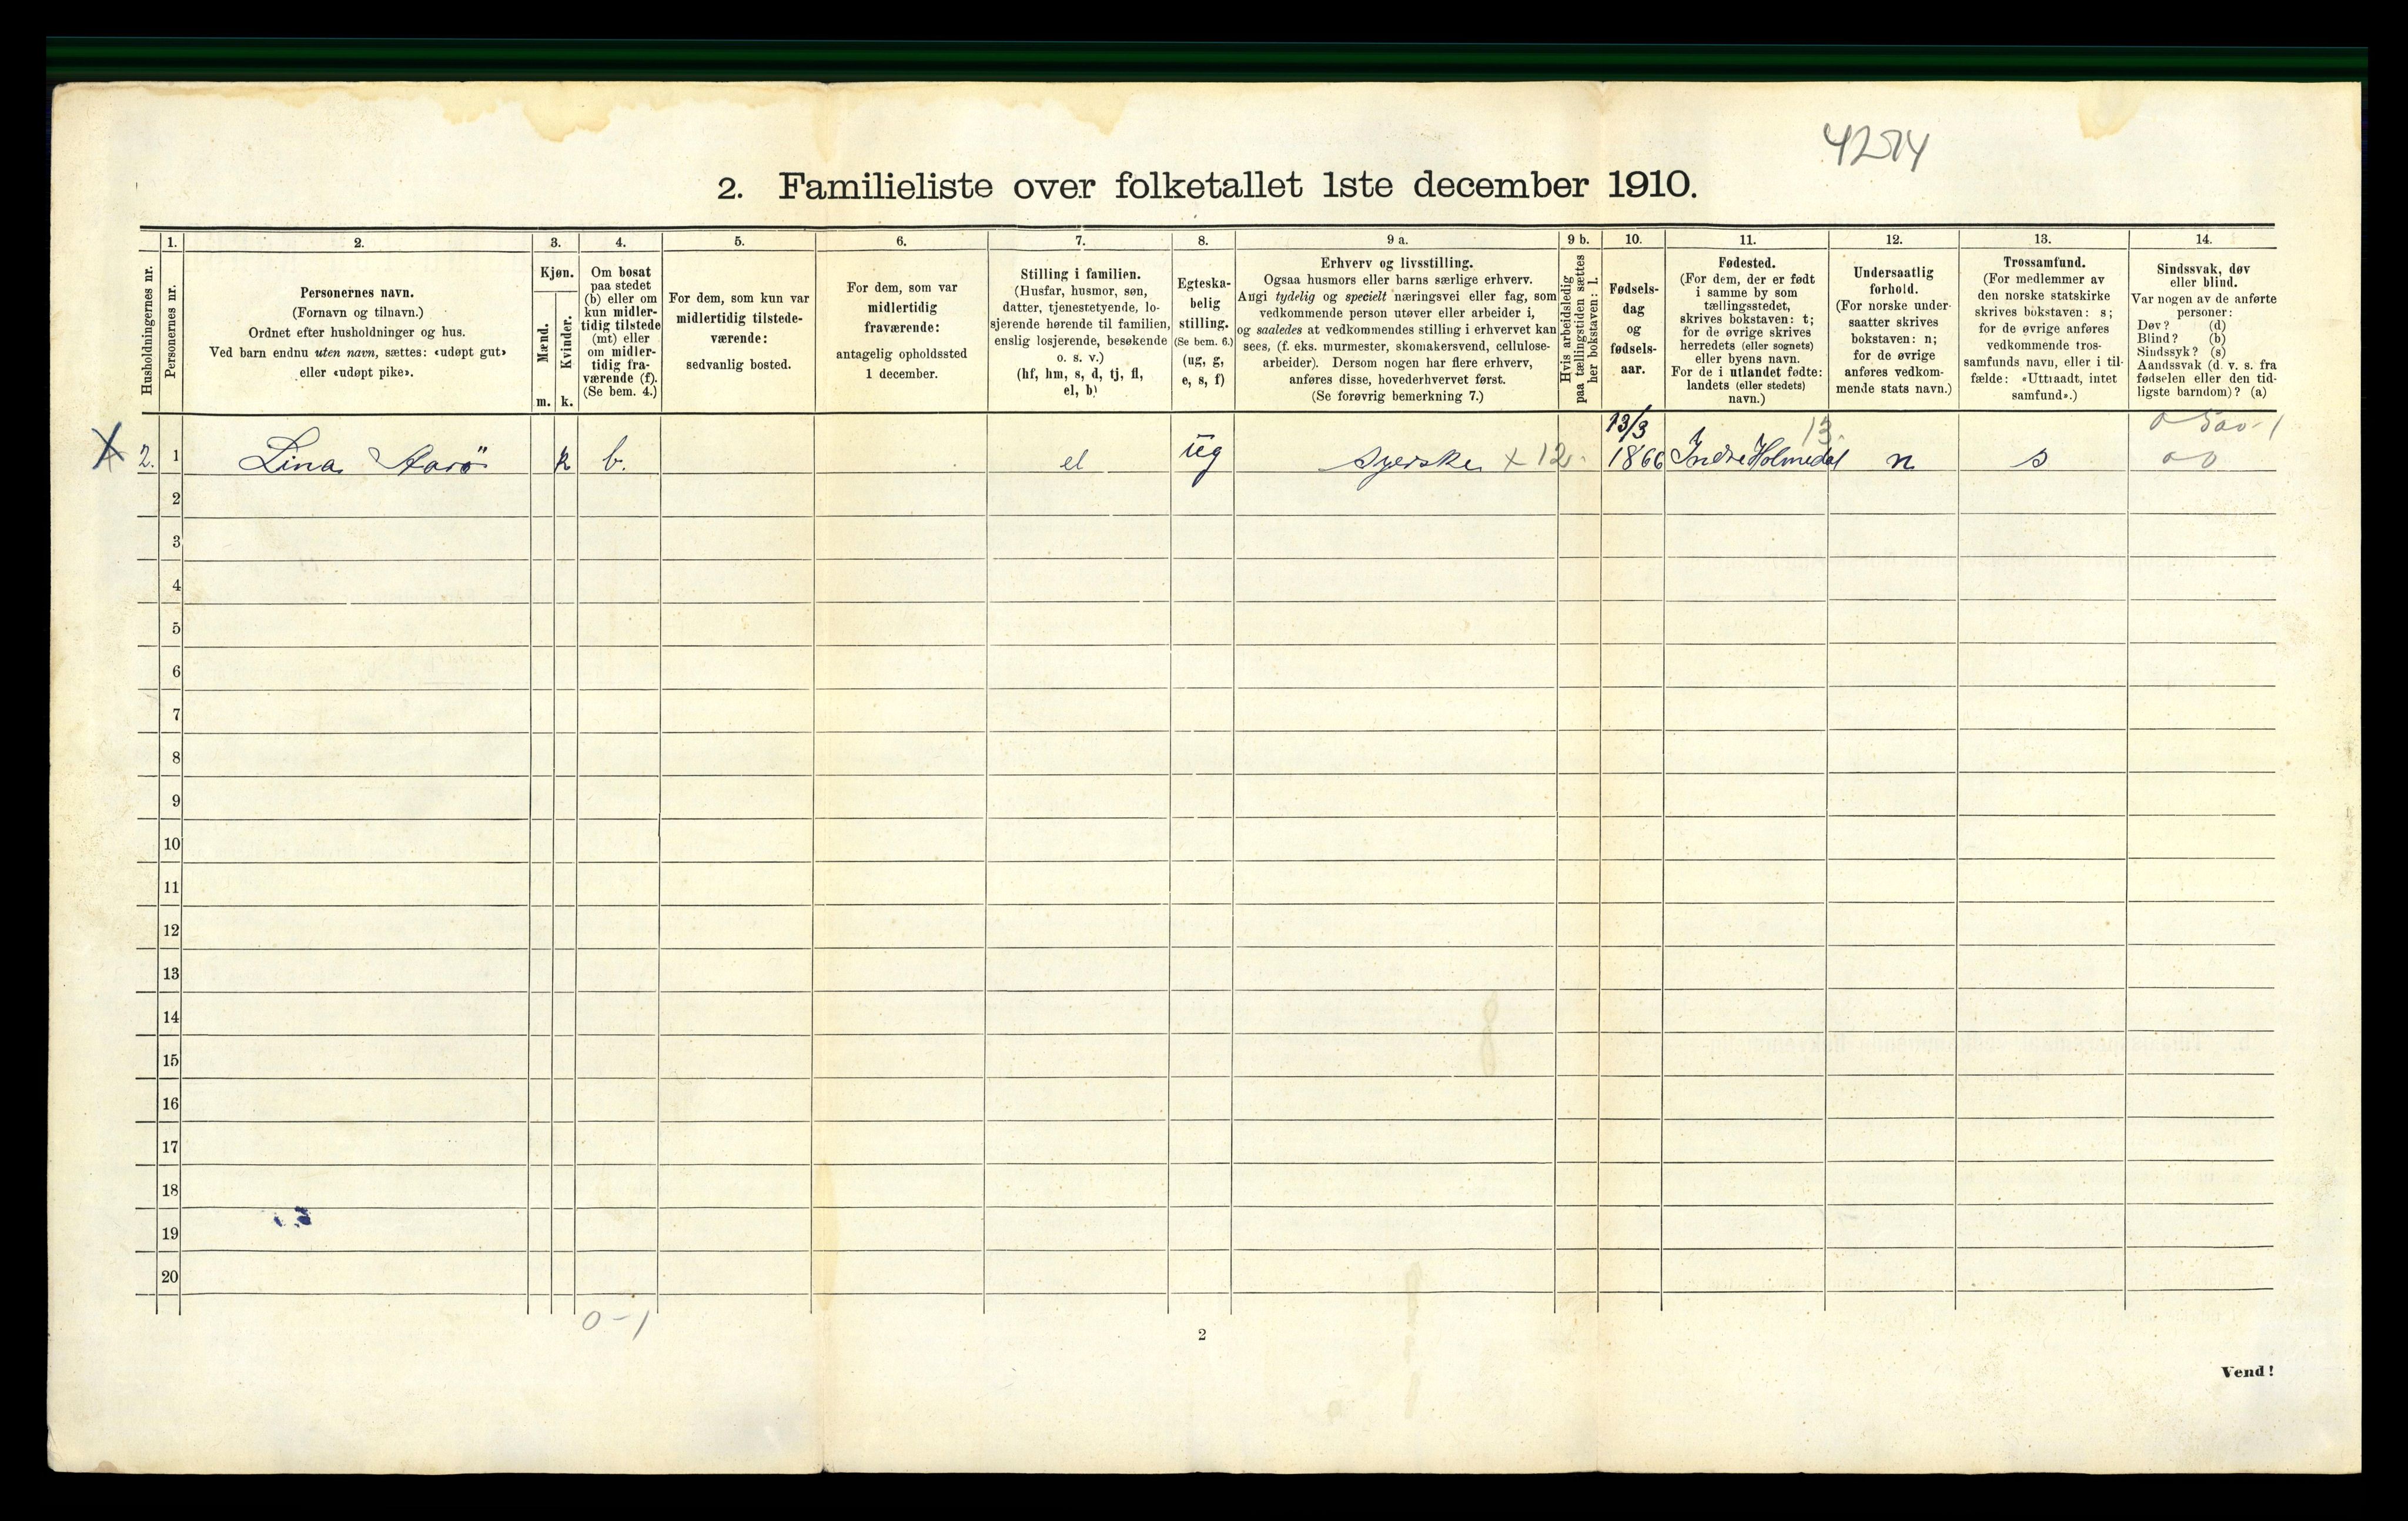 4274
2. Familieliste over folketallet 1ste december 1910.
Husholdningernes nr.
1.
Personernes nr.
2.
Personernes navn.
(Fornavn og tilnavn.)
Ordnet efter husholdninger og hus.
Ved barn endnu uten navn, sættes: «udøpt gut»
eller «udøpt pike».
3.
Kjøn.
Mænd.
Kvinder.
m. k.
4.
Om bosat
paa stedet
(b) eller om
kun midler-
tidig tilstede
(mt) eller
om midler-
tidig fra-
værende (f).
(Se bem. 4.)
5.
For dem, som kun var
midlertidig tilstede-
værende:
sedvanlig bosted.
6.
For dem, som var
midlertidig
fraværende:
antagelig opholdssted
1 december.
7.
Stilling i familien.
(Husfar, husmor, søn,
datter, tjenestetyende, lo-
sjerende hørende til familien,
enslig losjerende, besøkende
o. s. v.)
(hf, hm, s, d, tj, fl,
el, b)
8.
Egteska-
belig
stilling.
(Se bem. 6.)
(ug, g,
e, s, f)
9 a.
Erhverv og livsstilling.
Ogsaa husmors eller barns særlige erhverv.
Angi tydelig og specielt næringsvei eller fag, som
vedkommende person utøver eller arbeider i,
og saaledes at vedkommendes stilling i erhvervet kan
sees, (f. eks. murmester, skomakersvend, cellulose-
arbeider). Dersom nogen har flere erhverv,
anføres disse, hovederhvervet først.
(Se forøvrig bemerkning 7.)
9 b.
Hvis arbeidsledig
paa tællingstiden sættes
her bokstaven: l.
10.
Fødsels-
dag
og
fødsels-
aar.
11.
Fødested.
(For dem, der er født
i samme by som
tællingsstedet,
skrives bokstaven: t;
for de øvrige skrives
herredets (eller sognets)
eller byens navn.
For de i utlandet fødte:
landets (eller stedets)
navn.)
12.
Undersaatlig
forhold.
(For norske under-
saatter skrives
bokstaven: n;
for de øvrige
anføres vedkom-
mende stats navn.)
13.
Trossamfund.
(For medlemmer av
den norske statskirke
skrives bokstaven: s;
for de øvrige anføres
vedkommende tros-
samfunds navn, eller i til-
fælde: «Uttraadt, intet
samfund».)
14.
Sindssvak, døv
eller blind.
Var nogen av de anførte
personer:
Døv? (d)
Blind? (b)
Sindssyk? (s)
Aandssvak (d. v. s. fra
fødselen eller den tid-
ligste barndom)? (a)
13/3 13.
X 2. 1 Lina Aarö k b. el ug syerske x 12. 1866 Indre Holmedal n s 00
2
3
4
5
6
7
8
9
10
11
12
13
14
15
16
17
18
19
20
0-1
2
Vend!